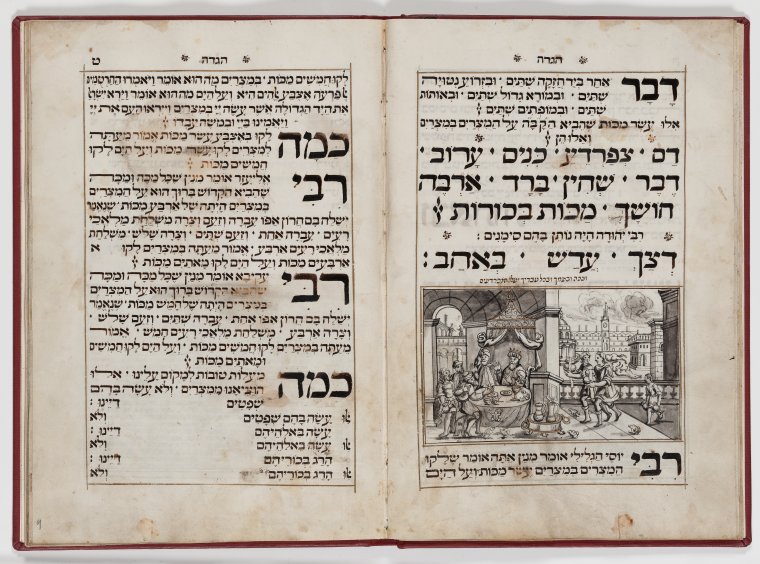 הגדה
דָבָר אחר ביד חזקה שתים · ובזרוע נטויה
שתים · ובמורא גדול שתים · ובאותות
שתים · ובמופתים שתים
אלו עשר מכות שהביא הקבה על המצרים במצרים
ואלו הן
דם · צפרדע · כנים · ערוב ·
דבר · שחין · ברד · ארבה
חושך · מכות בכורות
רבי יהודה היה נותן בהם סימנים :
דצך · עדש · באחב :
ובכה ובעמך ובכל עבדיך יעלו הצפרדעים
רבי יוסי הגלילי אומר מנין אתה אומר שלקו
המצרים במצרים עשר מכות ועל הים
הגדה
ט
לקו חמשים מכות · במצרים מה הוא אומר ויאמרו החרטמים
פרעה אצבע אהים היא · ועל הים מה הוא אומר וירא ישראל
את היד הגדולה אשר עשה יי במצרים וייראו העם את יי
ויאמינו ביי ובמשה עבדו
כמה לקו באצבע עשר מכות אמור מעתה
למצרים לקו עשר מכות ועל הים לקו
חמשים מכות
רבי אליעזר אומר מנין שכל מכה ומכה
שהביא הקדוש ברוך הוא על המצרים
במצרים היתה של ארבע מכות שנאמר
ישלח בם חרון אפו עברה וזעם וצרה משלחת מלאכי
רעים · עברה אחת · וזעם שתים · וצרה שלש · משלחת
מלאכי רעים ארבע · אמור מעתה במצרים לקו
ארבעים מכות · ועל הים לקו מאתים מכות
רבי עקיבא אומר מנין שכל מכה ומכה
שהביא הקדוש ברוך הוא על המצרים
במצרים היתה של חמש מכות · שנאמר
ישלח בם חרון אפו אחת · עברה שתים · וזעם שלש ·
וצרה ארבע · משלחת מלאכי רעים חמש · אמור
מעתה במצרים לקו חמשים מכות · ועל הים לקו חמשים
ומאתים מכות
כמה מעלות טובות למקום עלינו · אלו
הוציאנו ממצרים · ולא עשה בהם
שפטים דיינו :
או עשה בהם שפטים ולא
עשה באלהיהם דיינו :
או עשה באלהיהם ולא
הרג בכוריהם דיינו :
או הרג בכוריהם ולא